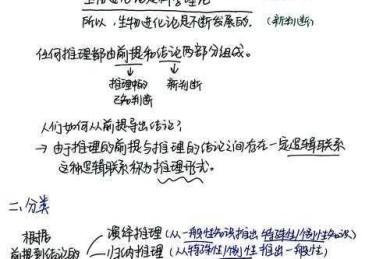 生物进化论是科学理论
所以，生物进化论是不断发展的。（新判断）
任何推理都由前提和结论两部分组成。
推理中的 新判断
已知判断
人们如何从前提导出结论？
→ 由于推理的前提与推理的结论之间存在一定逻辑联系
这种逻辑联系称为推理形式。
二、分类
根据 演绎推理（从一般性知识推出特殊性/个别性知识）
前提到结论的 归纳推理（从特殊性/个别性推出一般性）